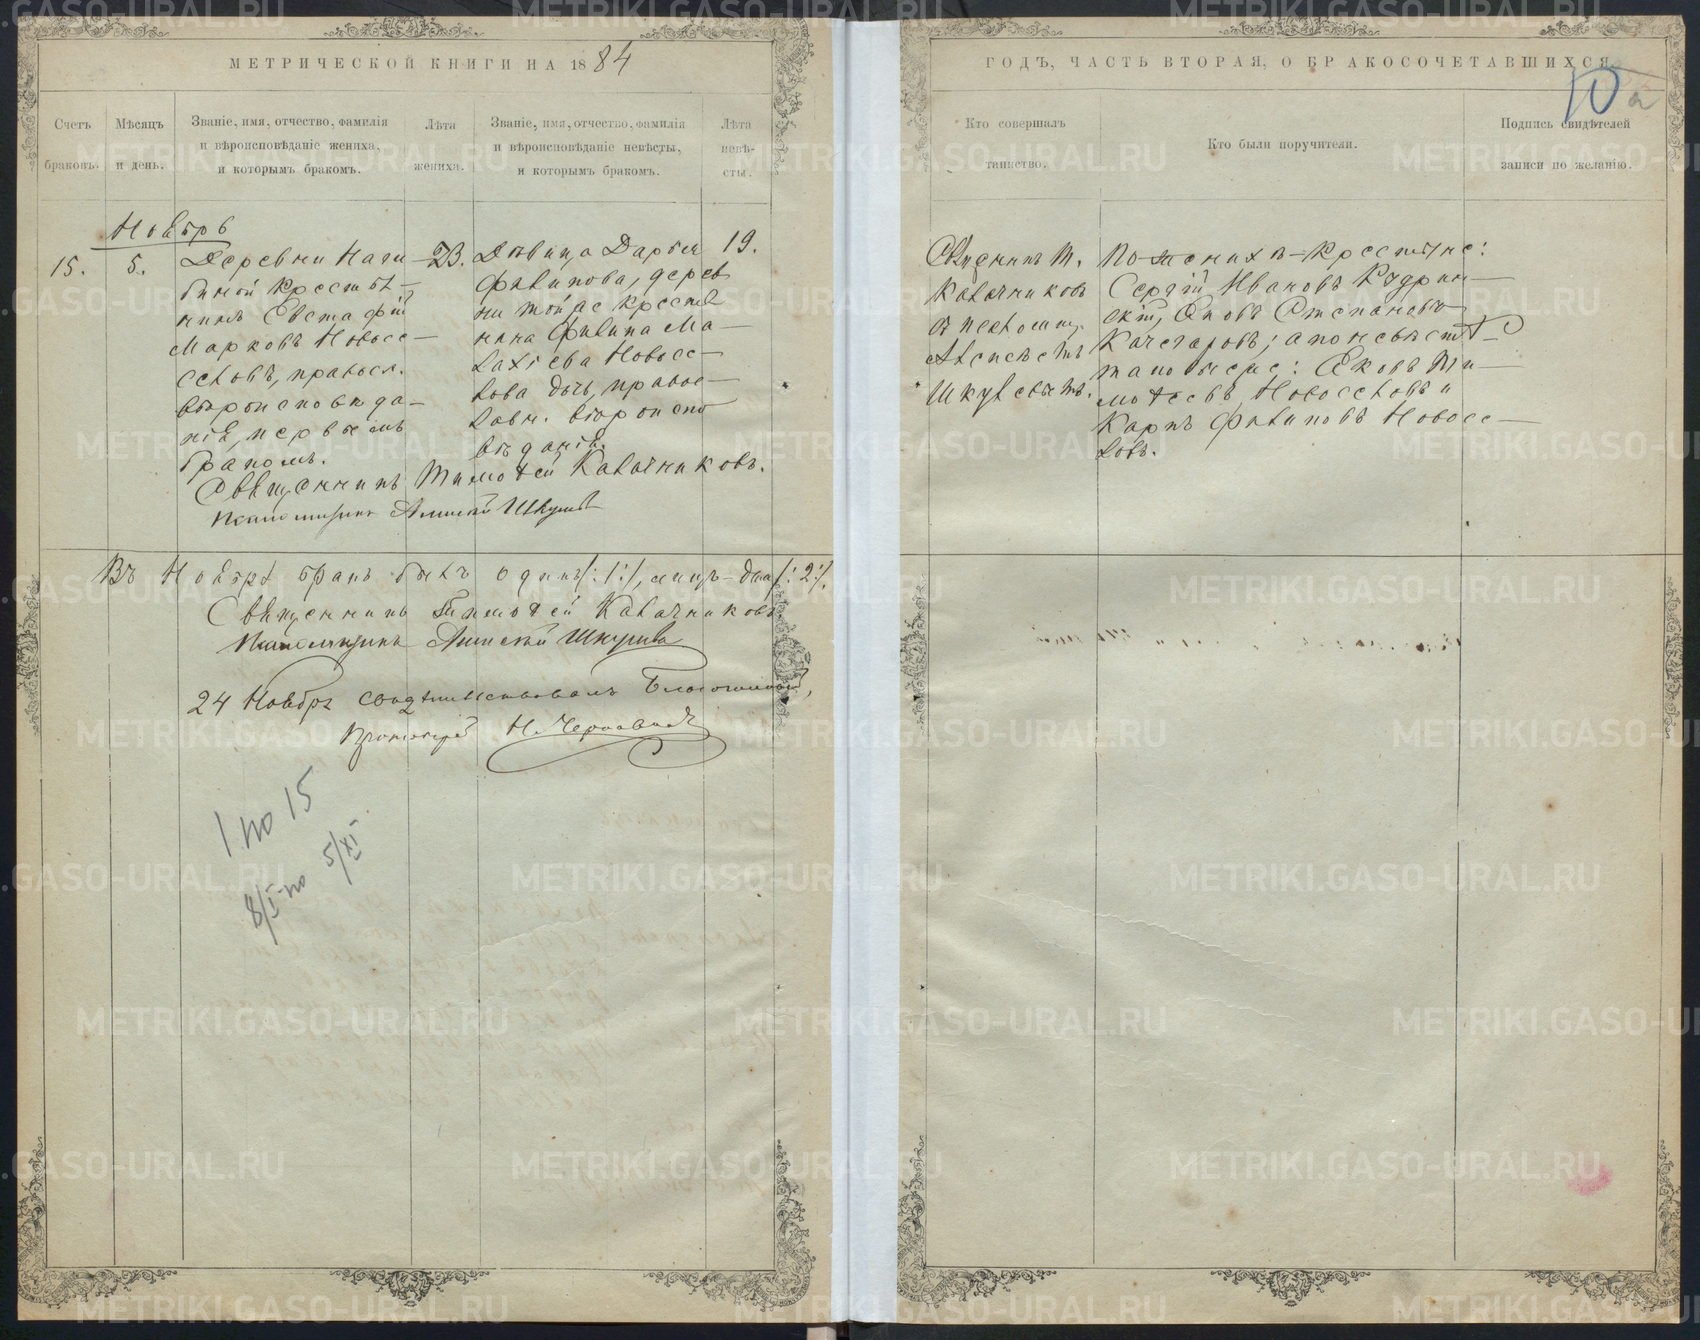 МЕТРИЧЕСКОЙ КНИГИ НА 1884
Счетъ браковъ.
Мѣсяцъ и день.
Званіе, имя, отчество, фамилія
и вѣроисповѣданіе жениха,
и которымъ бракомъ.
Лѣта жениха.
Званіе, имя, отчество, фамилія
и вѣроисповѣданіе невѣсты,
и которымъ бракомъ.
Лѣта невѣ-
сты.
Ноябрь
15.
5.
Деревни Наги-
биной крестья-
нинъ Евстафій
Марковъ Новосе-
селовъ, правосл.
вѣроисповѣда-
нія, первымъ
бракомъ.
23.
Дѣвица Дарья
Филипова, дерев
ни той же крестья
нина Филипа Ма-
лахіева Новосе-
лова дочь, правос-
лавн. вѣроиспо
вѣданія.
19.
Священникъ Тимофей Калачниковъ.
Псаломщикъ Алексѣй Шкулевъ
Въ Ноябрѣ бракъ былъ одинъ /:1:/, лицъ - два /:2:/.
Священникъ Тимофей Калачниковъ.
Псаломщикъ Алексѣй Шкулевъ
24 Ноября свидѣтельствовалъ Благочинный,
Протоіерей Н. Черновскій
1 по 15
8/I - по 5/XI
ГОДЪ, ЧАСТЬ ВТОРАЯ, О БРАКОСОЧЕТАВШИХСЯ
10
Кто совершалъ
таинство.
Кто были поручители.
Подпись свидѣтелей
записи по желанію.
Священникъ Т.
Калачниковъ
съ псаломщ.
Алексѣемъ
Шкулевымъ.
По женихѣ - крестьяне:
Сергій Ивановъ Кудрин-
скій, Яковъ Степановъ
Качегаровъ; а по невѣстѣ -
тановые же: Яковъ Ти-
мофеевъ Новоселовъ и
Карпъ Филиповъ Новосе-
ловъ.
METRIKI.GASO-URAL.RU